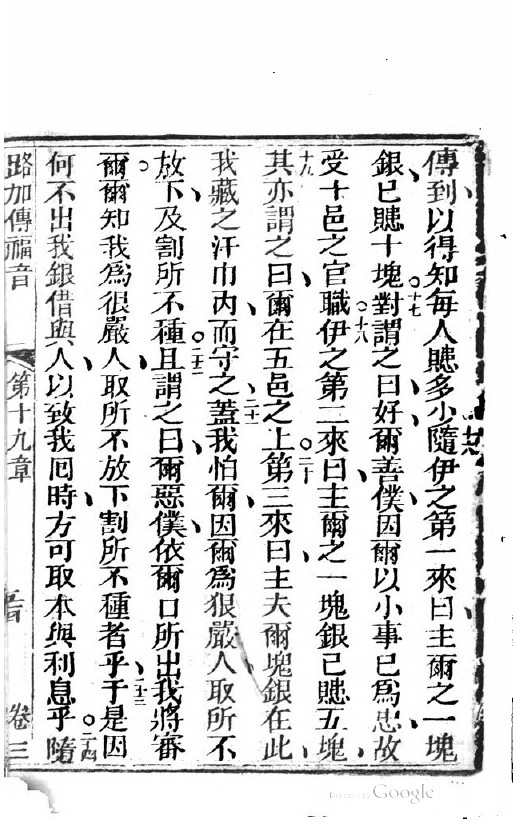 傳到以得知每人賺多少隨伊之第一來曰主爾之一塊
銀已賺十塊對謂之曰好爾善僕因爾以小事已爲忠故
受十邑之官職伊之第二來曰主爾之一塊銀已賺五塊
其亦謂之曰爾在五邑之上第三來曰主夫爾塊銀在此
我藏之汗巾內而守之蓋我怕爾因爾爲狠嚴人取所不
放下及割所不種且謂之曰爾惡僕依爾口所出我將審
爾爾知我爲很嚴人取所不放下割所不種者乎于是因
何不出我銀借與人以致我囘時方可取本與利息乎隨
路加傳福音 第十九章 卷三
十七
十八
十九
二十
二十一
二十二
二十三
二十四
Google